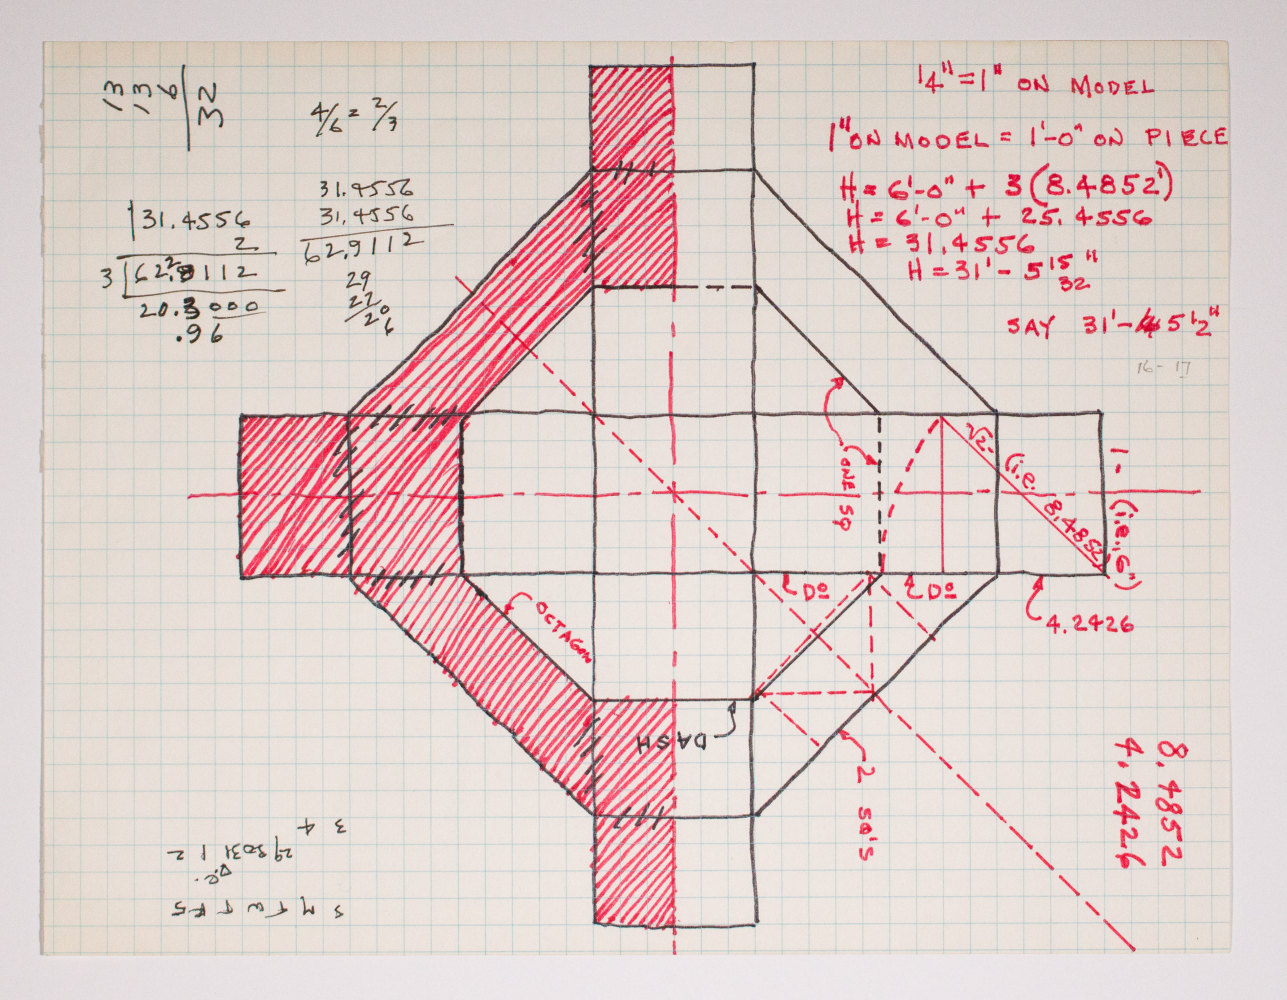 13
13
6
32
4/6 = 2/3
31.4556
2
3 62.9112
20.3000
.96
31.4556
31.4556
62.9112
29
22
20
6
1/4" = 1" ON MODEL
1" ON MODEL = 1'-0" ON PIECE
H = 6'-0" + 3 (8.4852')
H = 6'-0" + 25.4556
H = 31.4556
H = 31' - 5 15/32"
SAY 31'-5 1/2"
16 - 17
√2- (i.e. 8.4852)
1- (i.e., 6")
ONE SQ
Do
Do
4.2426
OCTAGON
DASH
2 SQ'S
8.4852
4.2426
S M T W T F S
D.C.
29 30 31 1 2
3 4